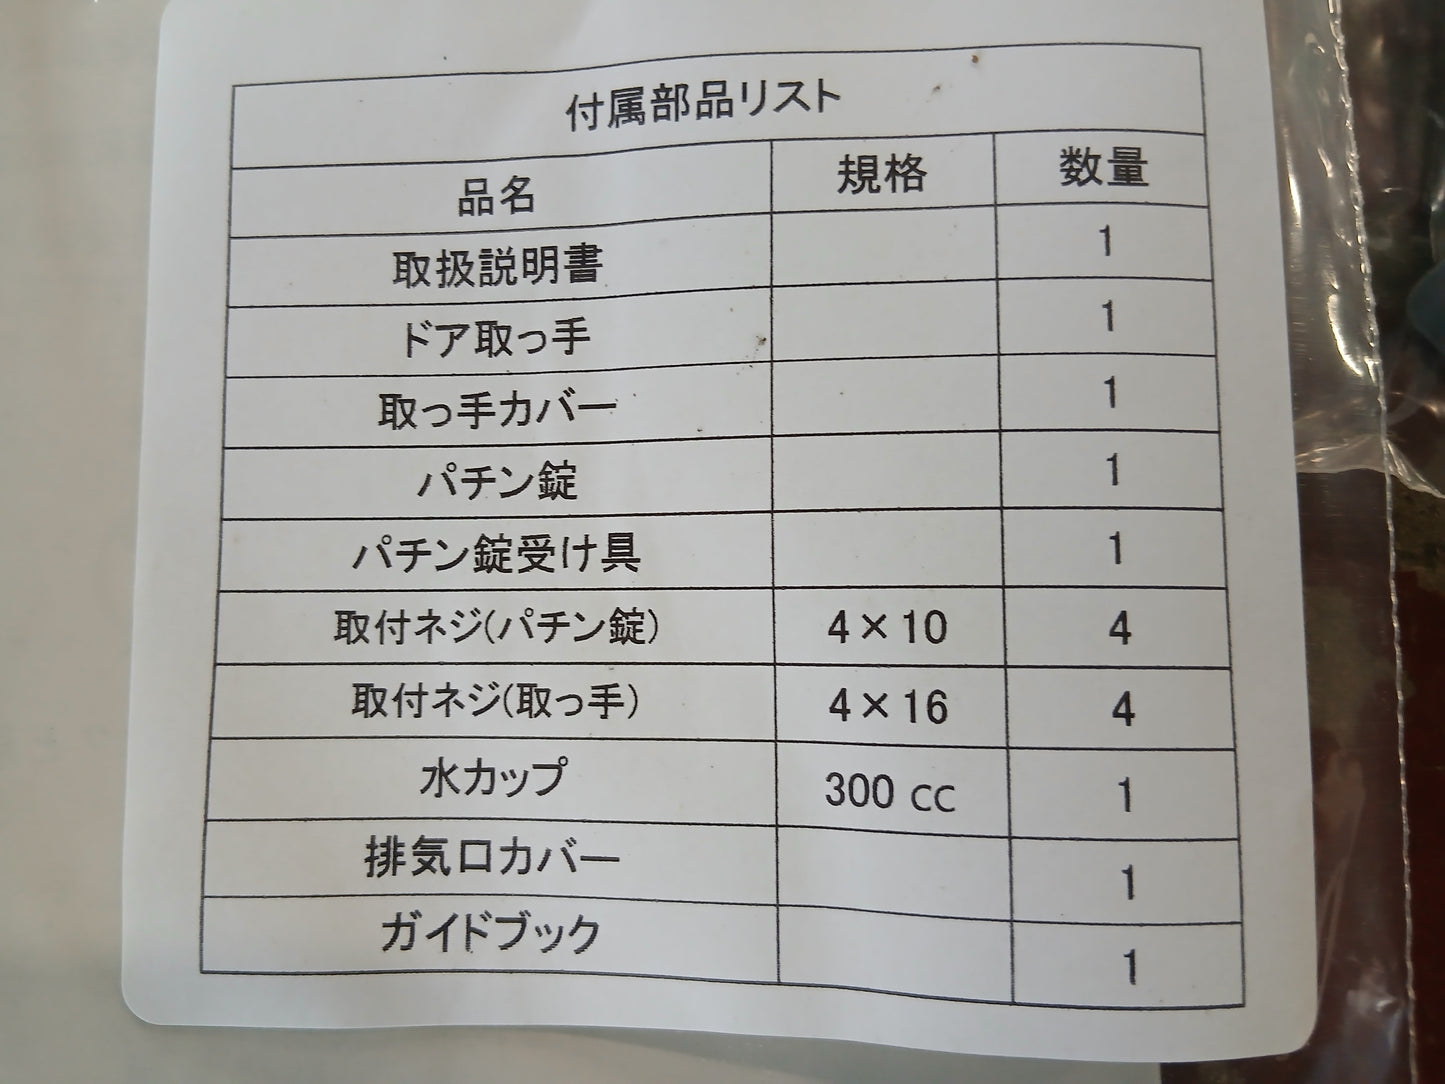 付属部品リスト
品名 規格 数量
取扱説明書 1
ドア取っ手 1
取っ手カバー 1
パチン錠 1
パチン錠受け具 1
取付ネジ(パチン錠) 4×10 4
取付ネジ(取っ手) 4×16 4
水カップ 300 cc 1
排気口カバー 1
ガイドブック 1